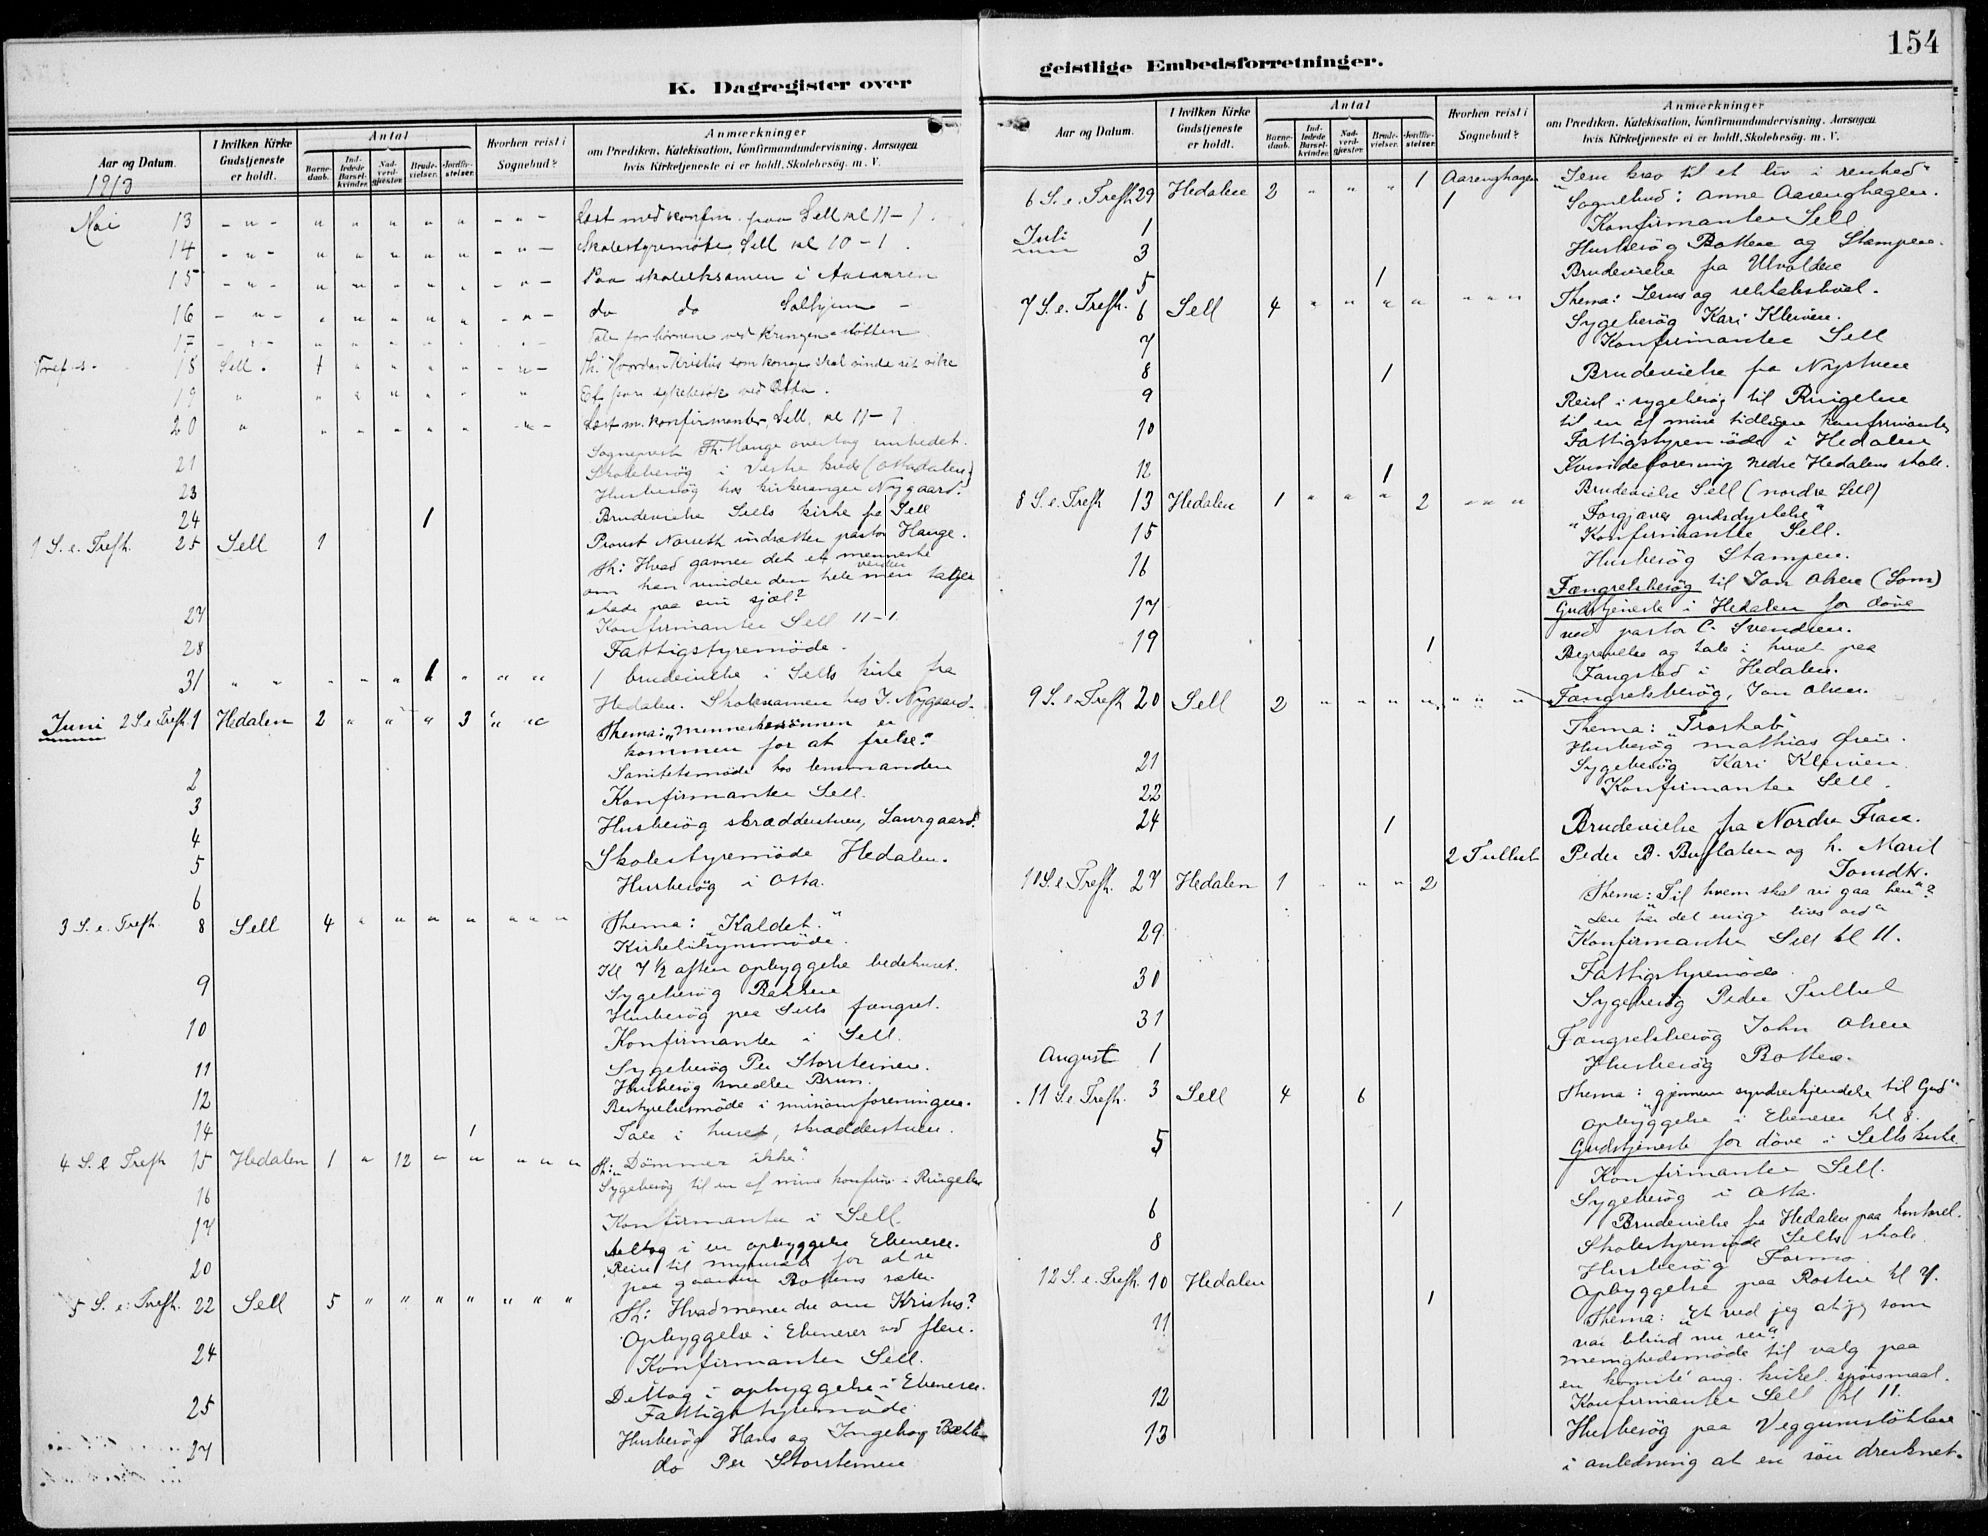 154
K. Dagregister over
geistlige Embedsforretninger.
Aar og Datum.
I hvilken Kirke Gudstjeneste er holdt.
Antal
Barne-daab.
Ind-ledede Barsel-kvinder.
Nad-verd-gjæster.
Brude-vielser.
Jordfæ-stelser.
Hvorhen reist i Sognebud?
Anmærkninger
om Prædiken, Katekisation, Konfirmandundervisning, Aarsagen
hvis Kirketjeneste ei er holdt, Skolebesøg. m. V.
1913
Mai 13 - " - " " " " " - " - Læst med konfirm. paa Sell kl 11-1.
14 - " - " " " " " " - Skolestyremöte, Sell kl 10-1.
15 - " - " " " " " - " - Paa skoleeksamen i Aasaaren
16 - " - " " " " " - " - do do Solhjem -
17 - " - " " " " " " - Tale for börnene ved Kringen-stötten
Tref. s. 18 Sell. 1 " " " " - " - Th. Hvordan Kristus som konge skal vinde sit rike
19 " " " " " " " sykebesök ved Otta.
20 " " " " " " - " - Læst m. konfirmanter, Sell, kl 11-1
Sogneprest Th. Hauge overtog embedet.
21 Skolebesög i Vestre kreds (Ottadalen)
23 Husbesög hos kirkesanger Nygaard.
24 1 Brudevielse Sells kirke fra Sell
1 S. e. Trefh. 25 Sell 1 Provst Norseth indsætter pastor Hauge.
Th: Hvad gavner det et menneske
om han vinder den hele verden men tager
skade paa sin sjæl?
27 Konfirmanter Sell 11-1.
28 Fattigstyremöde.
31 " " " " " 1 " " " 1 brudevielse i Sells kirke fra
Hedalen. Skoleexamen hos J. Nygaard.
Juni 2 S e Trefh 1 Hedalen 2 " " " 3 " " Thema: "Menneskesönnen er
kommen for at frelse."
2 Sanitetsmöde hos lensmanden
3 Konfirmanter Sell.
4 Husbesög skrædderstuen, Laurgaard.
5 Skolestyremöde Hedalen.
6 Husbesög i Otta.
3 S. e. Trefh. 8 Sell 4 " " " " " " " Thema: "Kaldet."
Kirketilsynsmöde.
Kl 7 1/2 aften opbyggelse bedehuset.
9 Sygebesög Bakken
Husbesög paa Sells fængsel.
10 Konfirmanter i Sell.
11 Sygebesög Per Storsteinen.
Husbesög mediler Brun.
12 Bestyrelsesmöde i missionsforeningen.
14 1 Tale i huset, skræddersutuen.
4 S. e Trefh 15 Hedalen 1 " 12 " " " " " Th: "Dömmer ikke."
16 Sygebesög til en af mine konfirm. i Ringebu
17 Konfirmanter i Sell.
Deltog i en opbyggelse Ebeneser.
20 Reise til for at se
paa gaarden Bottens sæter.
5 S. e. Trefh. 22 Sell 5 " " " " " " " Th: Hvad mener du om Kristus?
Opbyggelse i Ebeneser ved flere.
24 Konfirmanter Sell.
Deltog i opbyggelse i Ebeneser.
25 Fattigstyremöde.
27 Husbesög Hans og Ingeborg
do Per Storsteinen
Aar og Datum.
I hvilken Kirke Gudstjeneste er holdt.
Antal
Barne-daab.
Ind-ledede Barsel-kvinder.
Nad-verd-gjæster.
Brude-vielser.
Jordfæ-stelser.
Hvorhen reist i Sognebud?
Anmærkninger
om Prædiken, Katekisation, Konfirmandundervisning, Aarsagen
hvis Kirketjeneste ei er holdt, Skolebesøg. m. V.
6 S. e. Trefh 29 Hedalen 2 " " " 1 Aasenghagen "Jesu krav til et liv i renhed"
1 Sognebud: Anne Aasenghagen.
Juli 1 Konfirmanter Sell
3 Husbesög Botten og Stampen.
5 1 Brudevielse fra Ulvolden
7 S. e. Trefh. 6 Sell 4 " " " " " " " Thema: Jesus og selskabslivet.
Sygebesög Kari Kleiven.
7 Konfirmanter Sell
8 1 Brudevielse fra Nystuen
9 Reist i sygebesög til Ringebu
til en af mine tidligere konfirmanter
10 Fattigstyremöde i Hedalen
Kvindeforening nedre Hedalens skole.
12 1 Brudevielse Sell (nordre Sell)
8 S. e. Trefh 13 Hedalen 1 " " " 2 " " " "Forgjæves gudsdyrkelse"
15 Konfirmanter Sell.
16 Husbesög Stampen.
Fængselsbesög til Jon Olsen (Lom)
17 Gudstjeneste i Hedalen for döve
ved pastor C. Svendsen.
19 1 Begravelse og tale i huset paa
Fangstad i Hedalen.
9 S. e Trefh 20 Sell 2 " " " " " " " Fængselsbesög, Jon Olsen.
Thema: "Troskab"
Husbesög Mathias Öien.
21 Sygebesög Kari Kleiven.
22 Konfirmanter Sell.
24 1 Brudevielse fra Nordre
2 Tullut Peder B. Buslaten og h. Marit
Jonsdtr.
10 S. e Trefh. 27 Hedalen 1 " " " 2 Thema: "Til hvem skal vi gaa hen?
Du har det evige livs ord"
29 Konfirmanter Sell kl 11.
30 Fattigstyremöde.
Sygebesög Peder Tullut
31 Fængselsbesög John Olsen
August 1 Husbesög Botten.
11 S. e. Trefh. 3 Sell 4 6 Thema: "gjennem syndserkjendelse til Gud"
Opbyggelse i Ebeneser kl 8.
5 Gudstjeneste for döve i Sells kirke.
Konfirmanter Sell.
Sygebesög i Otta.
6 1 Brudevielse fra Hedalen paa kontoret.
8 Skolestyremöde Sells skole.
Husbesög Formo
12 S. e. Trefh. 10 Hedalen Opbyggelse paa Rosten kl 7.
1 Thema: "Et ved jeg at jeg som
var blind nu ser"
11 Menighedsmöde til valg paa
en komité ang. kirkel. spörsmaal.
12 Konfirmanter Sell kl 11.
13 Husbesög paa Veggumslökken
i anledning at en sön druknet.